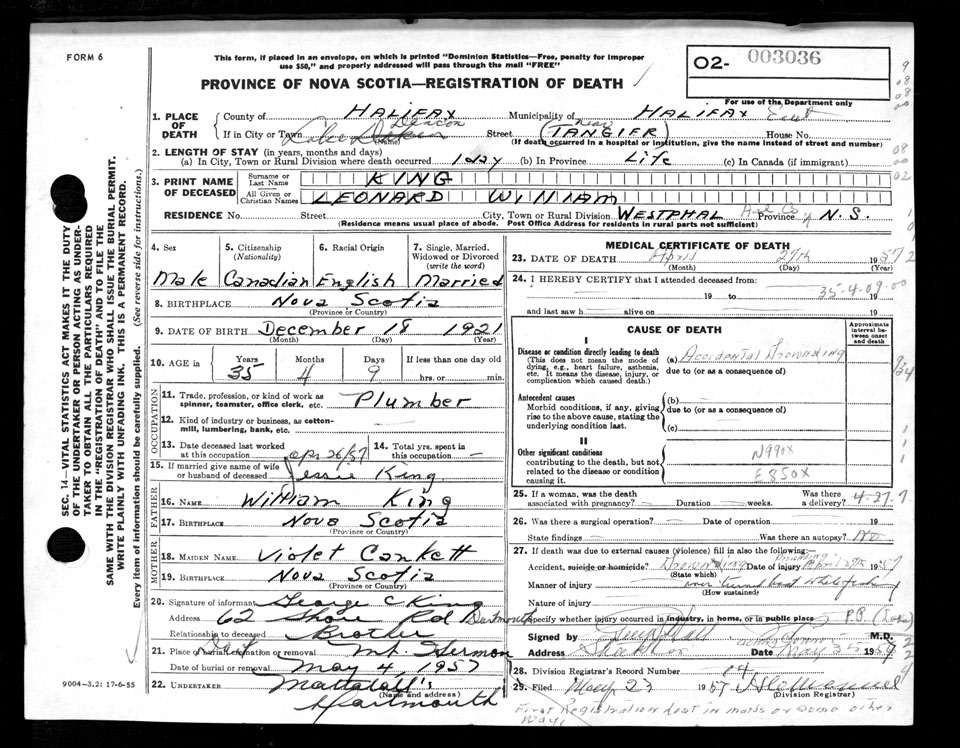 FORM 6
This form, if placed in an envelope, on which is printed "Dominion Statistics—Free, penalty for improper
use $50," and properly addressed will pass through the mail "FREE"
PROVINCE OF NOVA SCOTIA—REGISTRATION OF DEATH
O2- 003036
For use of the Department only
1. PLACE OF DEATH
County of HALIFAX Municipality of HALIFAX East
If in City or Town Lake Deacon (Name) Street (near TANGIER) House No.
(If death occurred in a hospital or institution, give the name instead of street and number)
2. LENGTH OF STAY (in years, months and days)
(a) In City, Town or Rural Division where death occurred 1 day (b) In Province Life (c) In Canada (if immigrant)
3. PRINT NAME OF DECEASED
Surname or Last Name KING
All Given or Christian Names LEONARD WILLIAM
RESIDENCE No. Street City, Town or Rural Division WESTPHAL Hfx Co Province N. S.
(Residence means usual place of abode. Post Office Address for residents in rural parts not sufficient)
4. Sex Male
5. Citizenship (Nationality) Canadian
6. Racial Origin English
7. Single, Married, Widowed or Divorced (write the word) Married
8. BIRTHPLACE Nova Scotia
(Province or Country)
9. DATE OF BIRTH December 18 1921
(Month) (Day) (Year)
10. AGE in Years 35 Months 4 Days 9 If less than one day old hrs. or min.
OCCUPATION
11. Trade, profession or kind of work as spinner, teamster, office clerk, etc. Plumber
12. Kind of industry or business, as cotton-mill, lumbering, bank, etc.
13. Date deceased last worked at this occupation Apr 26/57
14. Total yrs. spent in this occupation —
15. If married give name of wife or husband of deceased Jessie King
FATHER
16. NAME William King
17. BIRTHPLACE Nova Scotia
(Province or Country)
MOTHER
18. MAIDEN NAME Violet
19. BIRTHPLACE Nova Scotia
(Province or Country)
20. Signature of informant George C King
Address 62 Shore Rd Dartmouth
Relationship to deceased Brother
21. Place of burial, cremation or removal Mt. Hermon
Date of burial or removal May 4 1957
22. UNDERTAKER Mattatall's
(Name and address)
Dartmouth
9004—3.2: 17-6-55
MEDICAL CERTIFICATE OF DEATH
23. DATE OF DEATH April 27th 1957
(Month) (Day) (Year)
24. I HEREBY CERTIFY that I attended deceased from:
19 to 19
35-4-09-00
and last saw h alive on 19
CAUSE OF DEATH
Approximate interval between onset and death
I
Disease or condition directly leading to death
(This does not mean the mode of dying, e.g., heart failure, asthenia, etc. It means the disease, injury, or complication which caused death.)
(a) Accidental Drownding
due to (or as a consequence of)
Antecedent causes
Morbid conditions, if any, giving rise to the above cause, stating the underlying condition last.
(b)
due to (or as a consequence of)
(c)
II
Other significant conditions
contributing to the death, but not related to the disease or condition causing it.
N990X
E850X
25. If a woman, was the death associated with pregnancy? Duration weeks. Was there a delivery? 4-27.7
26. Was there a surgical operation? Date of operation 19
State findings Was there an autopsy? No
27. If death was due to external causes (violence) fill in also the following:—
Accident, suicide or homicide? Drownding Date of injury April 27th 1957
(State which)
Manner of injury over turned boat while fishing
(How sustained)
Nature of injury
Specify whether injury occurred in industry, in home, or in public place P.B. (Lake)
Signed by M.D.
Address Date May 1957
28. Division Registrar's Record Number 24
29. Filed May 23 1957
(Division Registrar)
First Registration lost in mails or some other
way.
SEC. 14—VITAL STATISTICS ACT MAKES IT THE DUTY
OF THE UNDERTAKER OR PERSON ACTING AS UNDER-
TAKER TO OBTAIN ALL THE PARTICULARS REQUIRED
IN THE "REGISTRATION OF DEATH" AND TO FILE THE
SAME WITH THE DIVISION REGISTRAR WHO SHALL ISSUE THE BURIAL PERMIT.
WRITE PLAINLY WITH UNFADING INK. THIS IS A PERMANENT RECORD.
Every item of information should be carefully supplied. (See reverse side for instructions.)